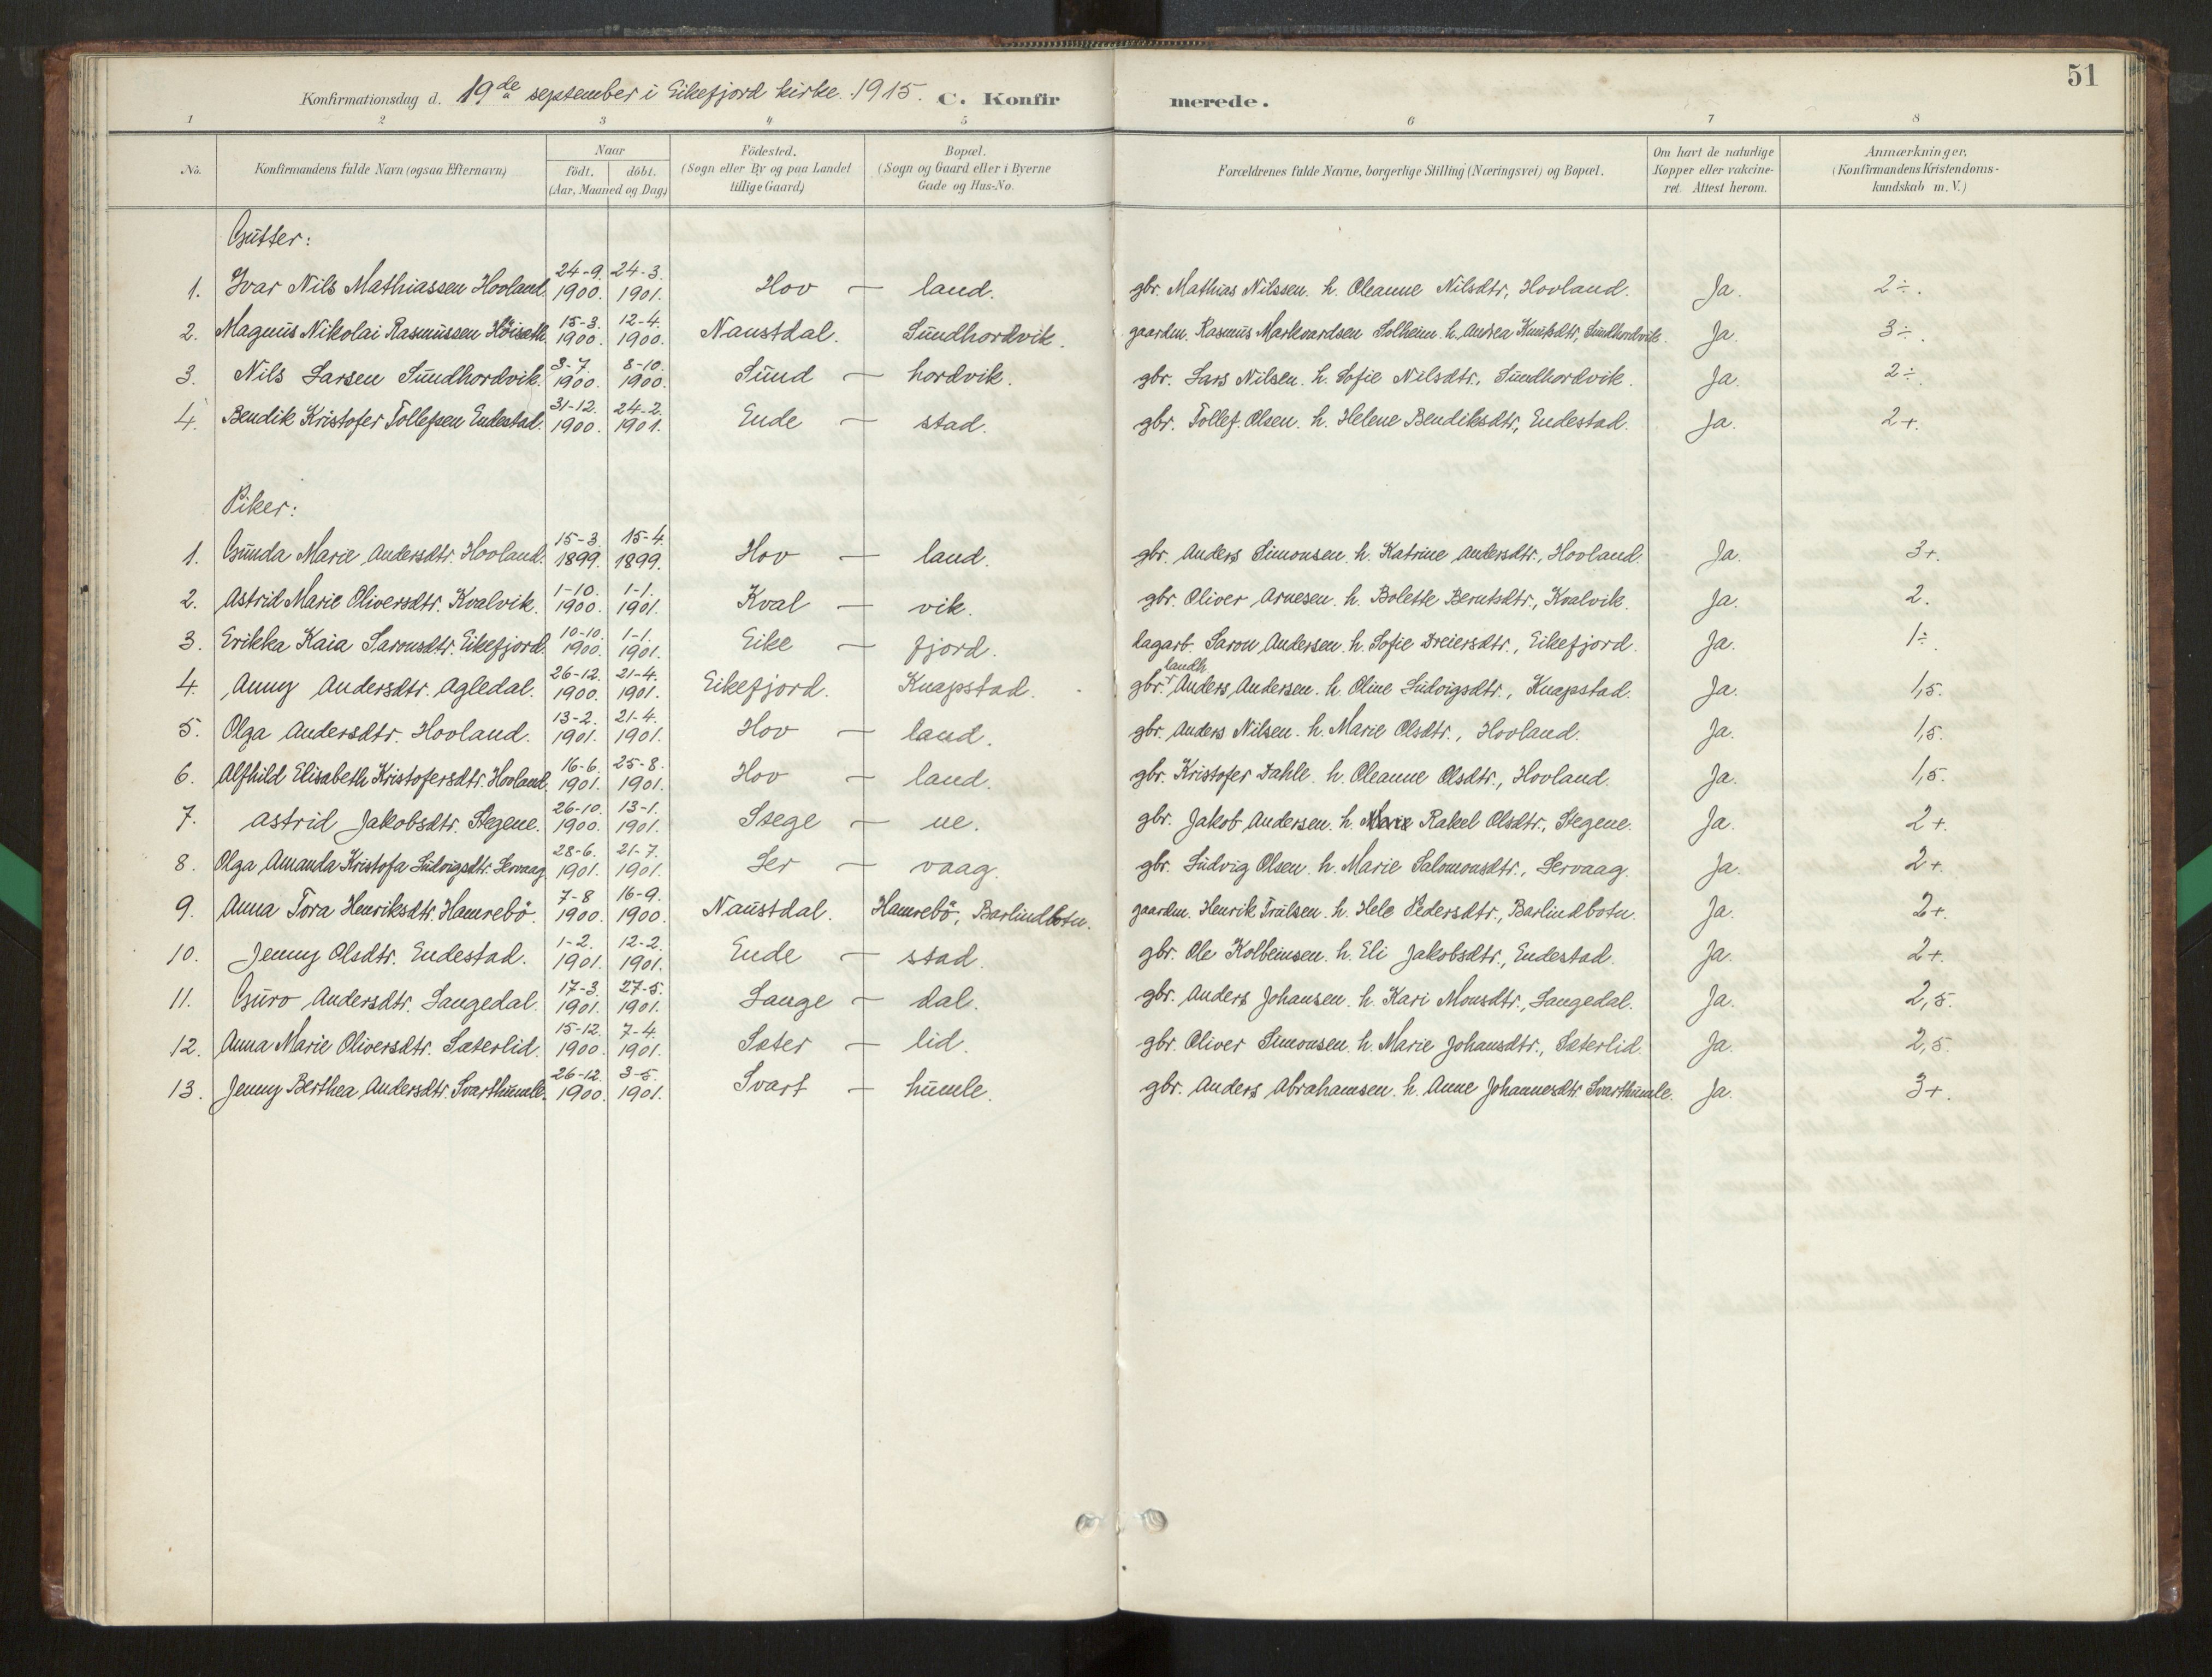 51
Konfirmationsdag d. 19de september i Eikefjord kirke. 1915. C. Konfirmerede.
1 2 3 4 5 6 7 8
No. Konfirmandens fulde Navn (ogsaa Efternavn) Naar født. døbt. (Aar, Maaned og Dag) Födested. (Sogn eller By og paa Landet tillige Gaard) Bopæl. (Sogn og Gaard eller i Byerne Gade og Hus-No. Forældrenes fulde Navne, borgerlige Stilling (Næringsvei) og Bopæl. Om havt de naturlige Kopper eller vakcineret. Attest herom. Anmærkninger. (Konfirmandens Kristendomskundskab m. V.)
Gutter:
1. Ivar Nils Mathiassen Hovland. 24-9. 1900. 24-3. 1901. Hov — land. gbr. Mathias Nilssen. h. Oleanne Nilsdtr, Hovland. Ja. 2÷.
2. Magnus Nikolai Rasmussen Höiseth. 15-3. 1900. 12-4. 1900. Naustdal. Sundhordvik. gaardm. Rasmus Markvardsen Solheim. h. Andrea Knutsdtr, Sundhordvik. Ja. 3÷.
3. Nils Larsen Sundhordvik. 3-7. 1900. 8-10. 1900. Sund — hordvik. gbr. Lars Nilsen. h. Sofie Nilsdtr. Sundhordvik. Ja. 2÷.
4. Bendik Kristofer Tollefsen Endestad. 31-12. 1900. 24-2. 1901. Ende — stad. gbr. Tollef Olsen. h. Helene Bendiksdtr, Endestad. Ja. 2+.
Piker:
1. Gunda Marie Andersdtr. Hovland. 15-3. 1899. 15-4. 1899. Hov — land. gbr. Anders Simonsen. h. Katrine Andersdtr., Hovland. Ja. 3+.
2. Astrid Marie Oliversdtr. Kvalvik. 1-10. 1900. 1-1. 1901. Kval — vik. gbr. Oliver Arnesen. h. Bolette Berntsdtr., Kvalvik. Ja. 2.
3. Erikka Kaia Saronsdtr. Eikefjord. 10-10. 1900. 1-1. 1901. Eike — fjord. dagarb. Saron Andersen. h. Sofie Dreiersdtr., Eikefjord. Ja. 1÷.
4. Anny Andersdtr. Agledal. 26-12. 1900. 21-4. 1901. Eikefjord. Knapstad. gbr. landh Anders Andersen. h. Oline Ludvigsdtr., Knapstad. Ja. 1,5.
5. Olga Andersdtr. Hovland. 13-2. 1901. 21-4. 1901. Hov — land. gbr. Anders Nilsen. h. Marie Olsdtr., Hovland. Ja. 1,5.
6. Alfhild Elisabeth Kristofersdtr. Hovland. 16-6. 1901. 25-8. 1901. Hov — land. gbr. Kristofer Dahle. h. Oleanne Olsdtr., Hovland. Ja. 1,5.
7. Astrid Jakobsdtr. Stegene. 26-10. 1900. 13-1. 1901. Stege — ne. gbr. Jakob Andersen. h. Rakel Olsdtr., Stegene. Ja. 2+.
8. Olga Amanda Kristofa Ludvigsdtr. Servaag. 28-6. 1901. 21-7. 1901. Ser — vaag. gbr. Ludvig Olsen. h. Marie Salomonsdtr., Servaag. Ja. 2+.
9. Anna Tora Henriksdtr. Hamrebö. 7-8 1900. 16-9. 1900. Naustdal. Hamrebö, Barlindbotn. gaardm. Henrik Trulsen. h. Hele Pedersdtr., Barlindbotn. Ja. 2+.
10. Jenny Olsdtr. Endestad. 1-2. 1901. 12-2. 1901. Ende — stad. gbr. Ole Kolbeinsen. h. Eli Jakobsdtr., Endestad. Ja. 2+.
11. Guro Andersdtr. Langedal. 17-3. 1901. 27-5. 1901. Lange — dal. gbr. Anders Johansen. h. Kari Monsdtr., Langedal. Ja. 2,5.
12. Anna Marie Oliversdtr. Sæterlid. 15-12. 1900. 7-4. 1901. Sæter — lid. gbr. Oliver Simonsen. h. Marie Johansdtr., Sæterlid. Ja. 2,5.
13. Jenny Berthea Andersdtr. Svarthumle. 26-12. 1900. 3-5. 1901. Svart — humle. gbr. Anders Abrahamsen. h. Anne Johannesdtr. Svarthumle. Ja. 3+.